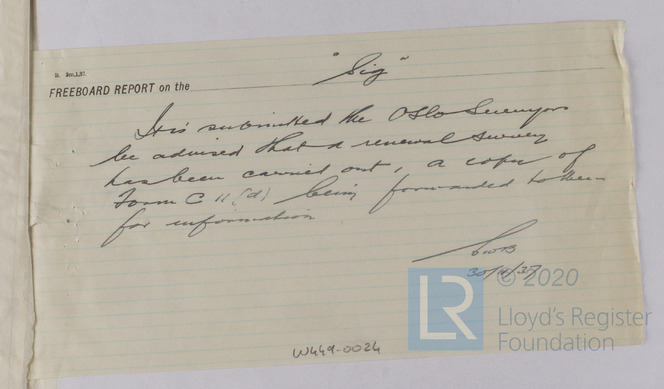 "Sig"
FREEBOARD REPORT on the
It is submitted the Oslo Surveyors
be advised that a renewal survey
has been carried out, a copy of
Form C 11(d) being forwarded to them
for information
30/4/37
LR
© 2020
Lloyd's Register
Foundation
W449-0024